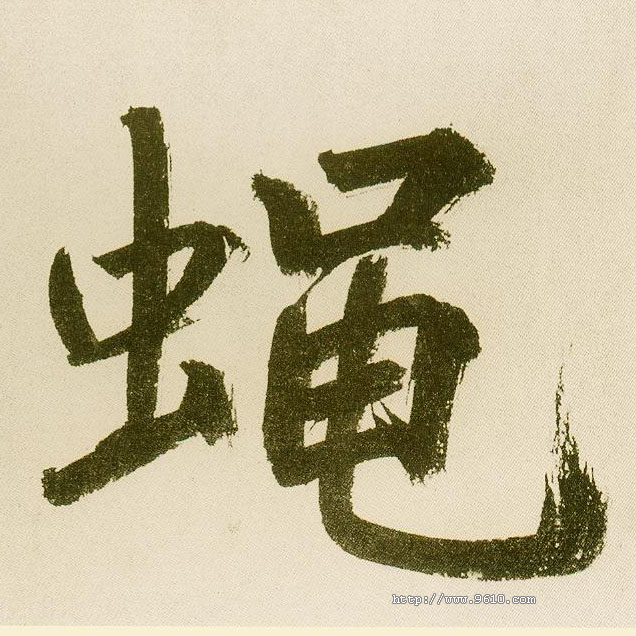 蝇
http://www.9610.com